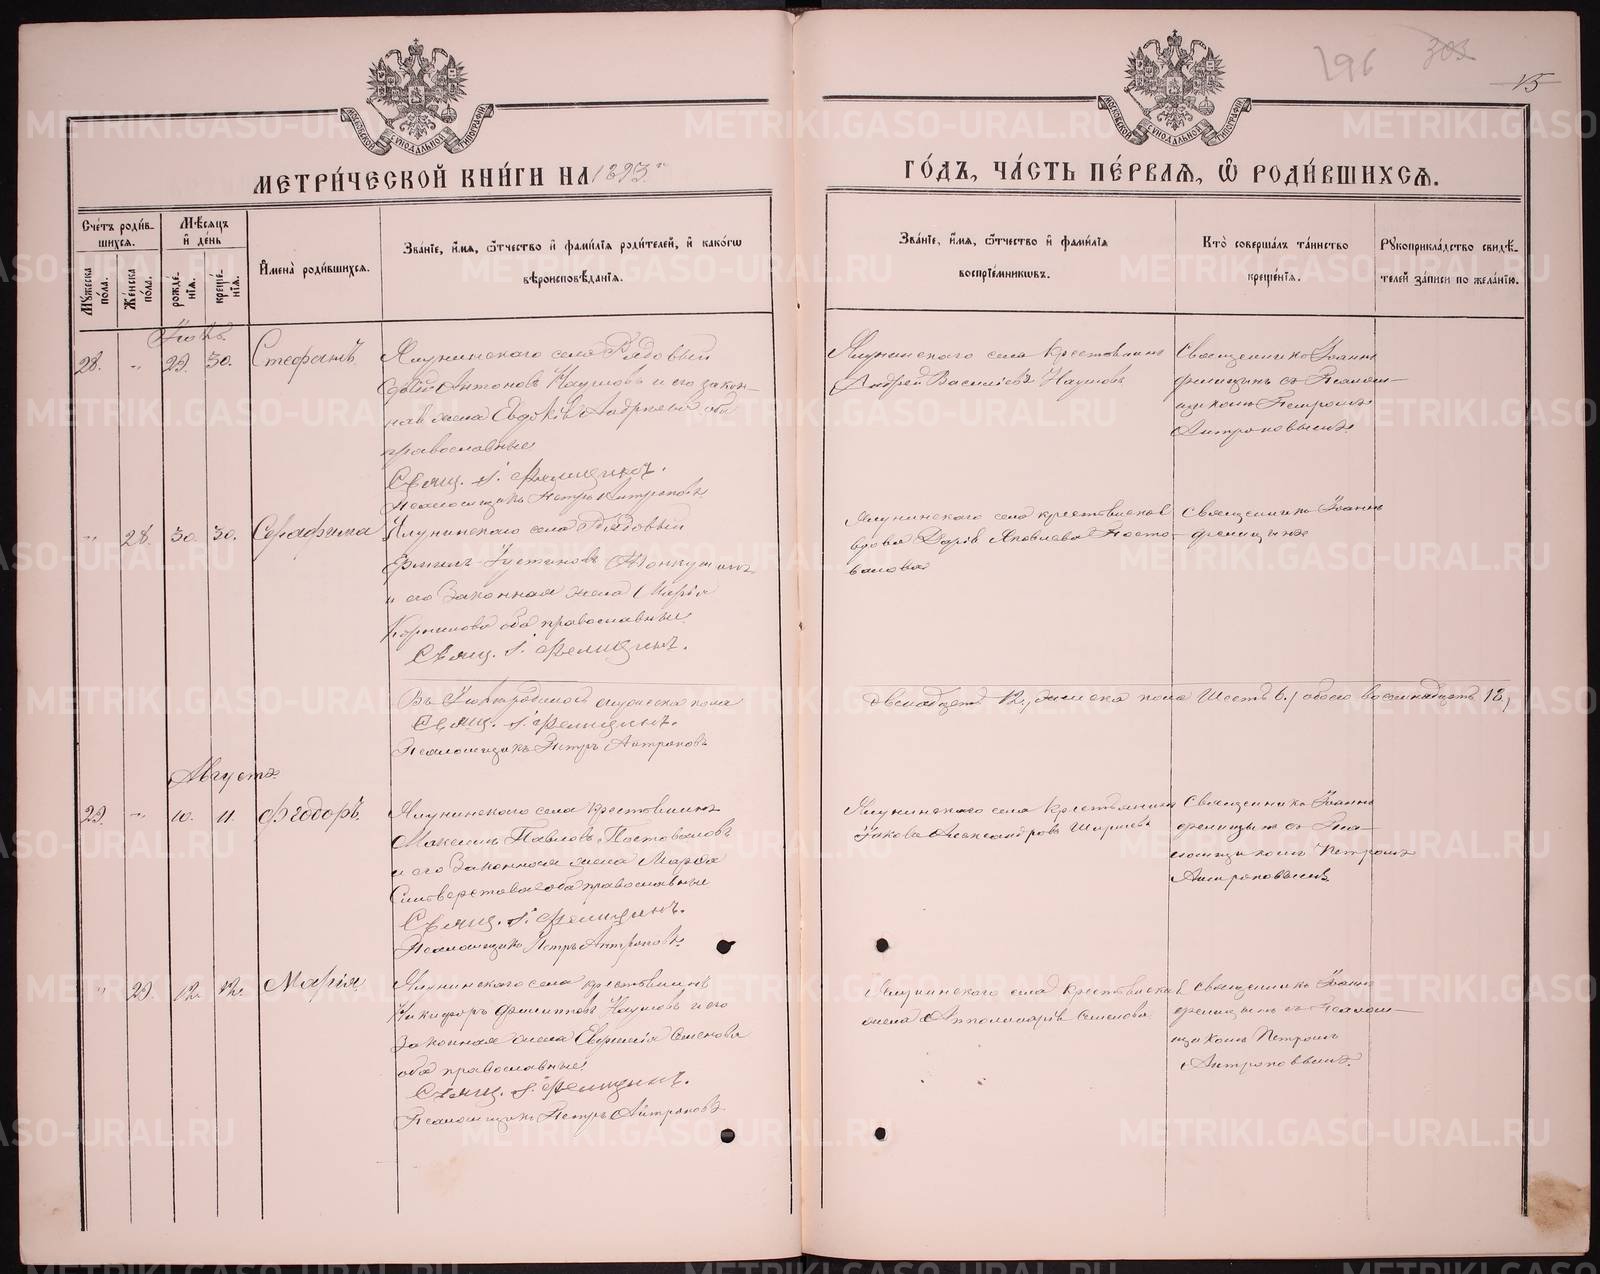 296 303
15
МОСКОВСКОЙ СѴНОДАЛЬНОЙ ТИПОГРАФІИ
МОСКОВСКОЙ СѴНОДАЛЬНОЙ ТИПОГРАФІИ
МЕТРИ́ЧЕСКОЙ КНИ́ГИ НА 1893 г.
ГО́ДЪ, ЧА́СТЬ ПЕ́РВАЯ, Ѡ РОДИ́ВШИХСЯ.
Сче́тъ роди́вшихся.
Мѣ́сяцъ и҆ де́нь
Му́жеска по́ла.
Же́нска по́ла.
рожде́нія.
креще́нія.
И҆мена̀ роди́вшихся.
Зва́ніе, и҆́мя, ѻ҆́тчество и҆ фами́лія роди́телей, и҆ како́гѡ
вѣроисповѣ́данія.
Зва́ніе, и҆́мя, ѻ҆́тчество и҆ фами́лія
воспріе́мникѡвъ.
Кто̀ соверша́лъ та́инство
креще́нія.
Рꙋкоприкла́дство свидѣ́телей за́писи по жела́нію.
Іюль
28. „ 29. 30. Стефанъ
Ялунинскаго села Рядовый
Антоновъ Наумовъ и его закон-
ная жена Евдокія Андреева оба
православные
Свящ. І. Фелицинъ.
Псаломщикъ Петръ Антроповъ
Ялунинскаго села крестьянинъ
Андрей Васильевъ Наумовъ
Священникъ Іоаннъ
Фелицинъ съ Псалом-
щикомъ Петромъ
Антроповымъ
„ 28. 30. 30. Серафима
Ялунинскаго села Рядовый
Ермилъ Устиновъ
и его Законная жена Марія
Корнилова оба православные
Свящ. І. Фелицинъ.
Ялунинскаго села крестьянская
вдова Дарія Яковлева Посто-
валова
Священникъ Іоаннъ
Фелицынъ
Въ Іюлѣ родилось мужеска пола
двенадцать 12, женска пола Шесть 6, обоего восемнадцать 18,
Свящ. І. Фелицинъ.
Псаломщикъ Петръ Антроповъ
Августъ
29. „ 10. 11. Ѳеодоръ
Ялунинскаго села крестьянинъ
Максимъ Павловъ Постоваловъ
и его Законная жена Марѳа
Сильверстова оба православные
Свящ. І. Фелицинъ.
Псаломщикъ Петръ Антроповъ
Ялунинскаго села крестьянинъ
Яковъ Александровъ Ширяевъ
Священникъ Іоаннъ
Фелицынъ съ Пса-
ломщикомъ Петромъ
Антроповымъ
„ 29. 12. 12. Марія
Ялунинскаго села крестьянинъ
Никифоръ Филипповъ Наумовъ и его
Законная жена Евфимія Семенова
оба православные
Свящ. І. Фелицынъ.
Псаломщикъ Петръ Антроповъ
Ялунинскаго села крестьянская
жена Апполинарія Семенова
Священникъ Іоаннъ
Фелицынъ съ Псалом-
щикомъ Петромъ
Антроповымъ.
METRIKI.GASO-URAL.RU